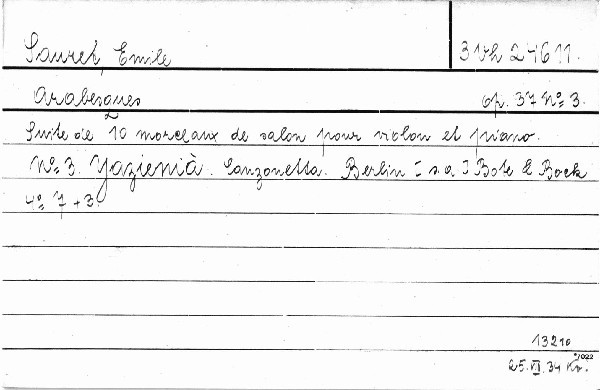 Sauret, Emile
3 Vh 24611.
Arabesques
op. 37 No 3.
Suite de 10 morceaux de salon pour violon et piano.
No 3. Yazienià. Canzonetta. Berlin [s.a.] Bote & Bock
4o 7 + 3.
13210
25. VI. 34 Kr.